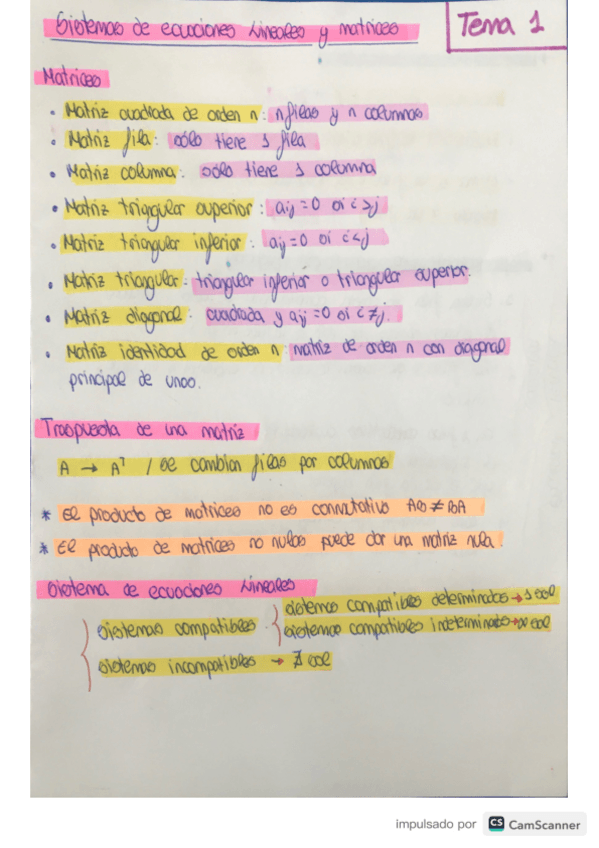 Sistemas de ecuaciones Lineales y matrices
Tema 1
Matrices
• Matriz cuadrada de orden n: n filas y n columnas
• Matriz fila: sólo tiene 1 fila
• Matriz columna: sólo tiene 1 columna
• Matriz triangular superior: aij = 0 si i>j
• Matriz triangular inferior: aij = 0 si i<j
• Matriz triangular: triangular inferior o triangular superior.
• Matriz diagonal: cuadrada y aij = 0 si i≠j.
• Matriz identidad de orden n: matriz de orden n con diagonal
principal de unos.
Traspuesta de una matriz
A → Aᵗ / se cambian filas por columnas
* El producto de matrices no es conmutativo AB ≠ BA
* El producto de matrices no nulas puede dar una matriz nula.
Sistema de ecuaciones Lineales
sistemas compatibles { sistemas compatibles determinados → 1 sol
sistemas compatibles indeterminados → ∞ sol
sistemas incompatibles → ∄ sol
impulsado por CS CamScanner